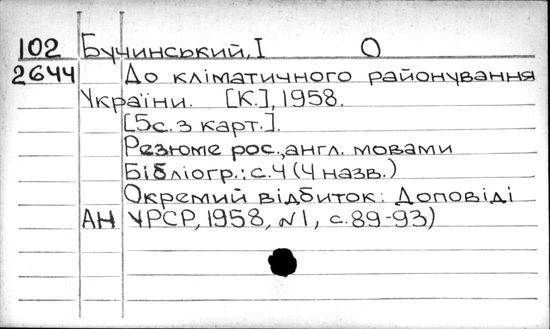 102 Бучинський, І О
2644 До кліматичного районування
України. [К.], 1958.
[5с. з карт.].
Резюме рос., англ. мовами
Бібліогр.: с.4 (4 назв.)
Окремий відбиток: Доповіді
АН УРСР, 1958, №1, с.89-93)